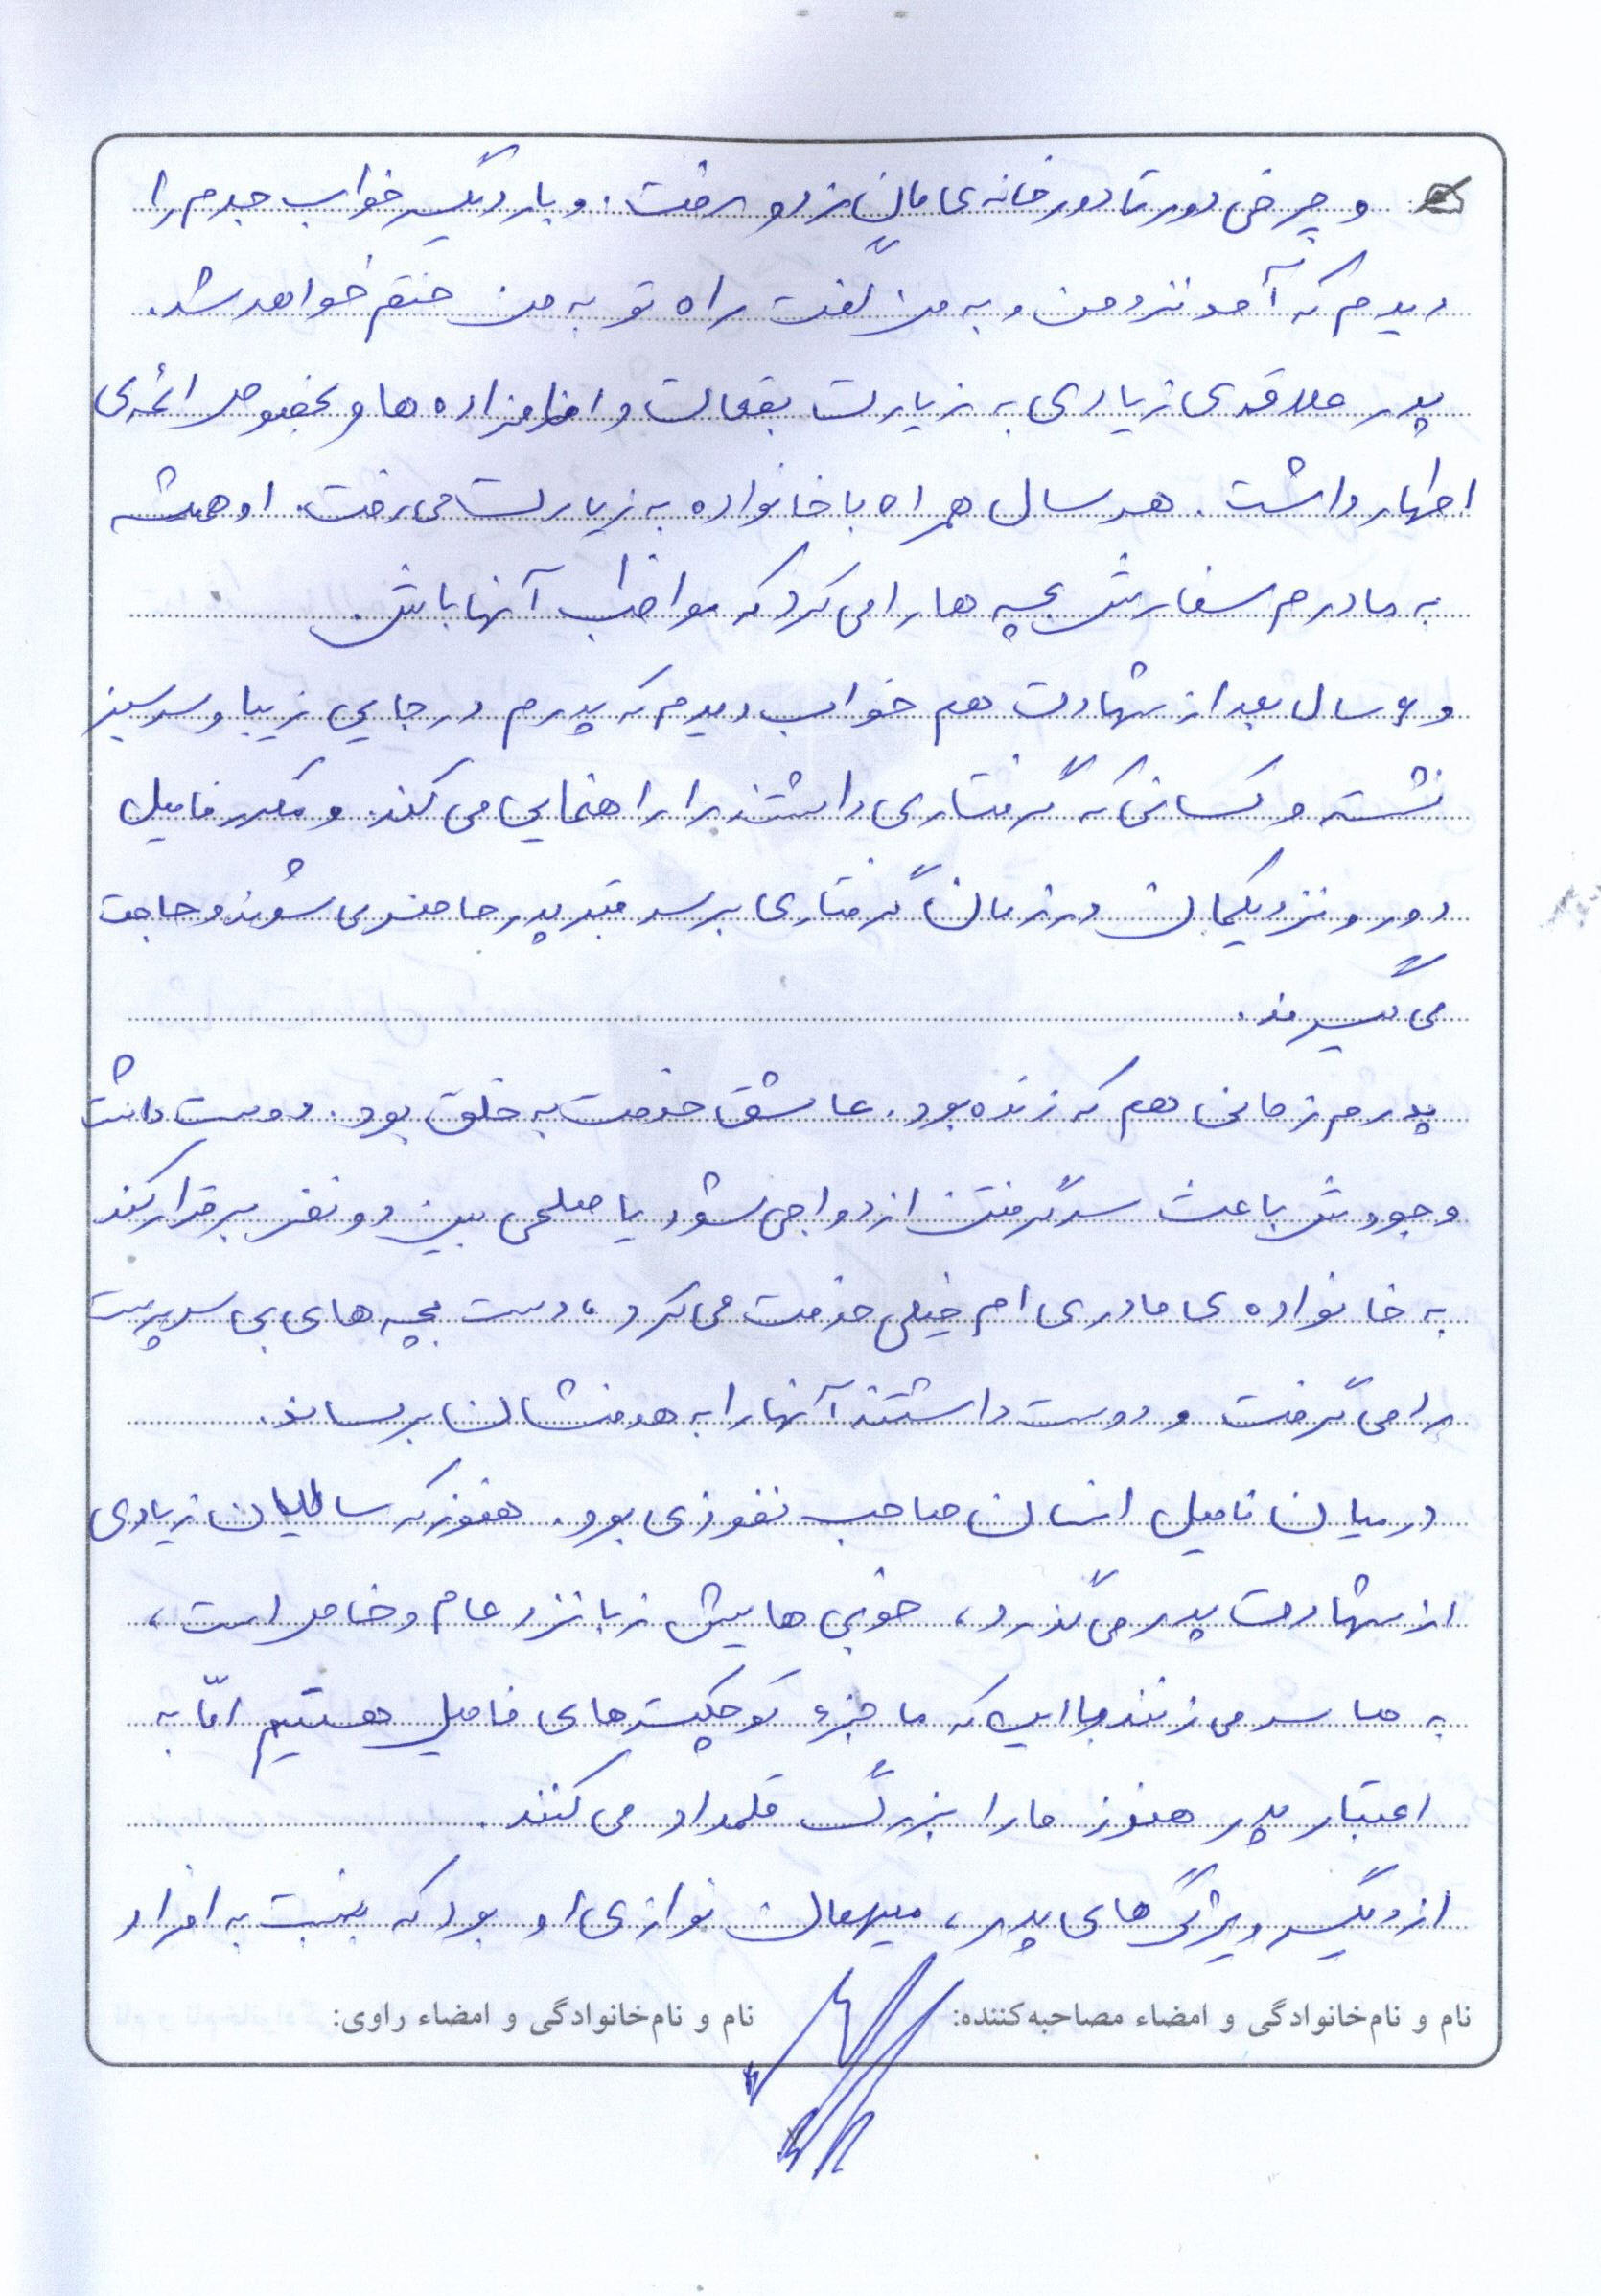 و چرخی دور تا دور خانه ی مان زد و رفت. و بار دیگر خواب جدم را
دیدم که آمد نزد من و به من گفت راه تو به من ختم خواهد شد.
پدر علاقه ی زیادی به زیارت بقعات و امامزاده ها و بخصوص ائمه ی
اطهار داشت. هر سال همراه با خانواده به زیارت می رفت. او همیشه
به مادرم سفارش بچه ها را می کرد که مواظب آنها باش.
و ۶ سال بعد از شهادت هم خواب دیدم که پدرم در جایی زیبا و سرسبز
نشسته و کسانی که گرفتاری داشتند را راهنمایی می کند. و مکرر فامیل
دور و نزدیکمان در زمان گرفتاری بر سر قبر پدر حاضر می شوند و حاجت
می گیرند.
پدرم زمانی هم که زنده بود. عاشق خدمت به خلق بود. دوست داشت
وجودش باعث سر گرفتن ازدواجی شود یا صلحی بین دو نفر برقرار کند
به خانواده ی مادری ام خیلی خدمت می کرد، دست بچه های بی سرپرست
را می گرفت و دوست داشتند آنها را به هدفشان برساند.
در میان فامیل انسان صاحب نفوذی بود. هنوز که سالیان زیادی
از شهادت پدر می گذرد، خوبی هایش زبانزد عام و خاص است،
به ما سر می زنند با این که ما جزء کوچکترهای فامیل هستیم امّا به
اعتبار پدر هنوز ما را بزرگ قلمداد می کنند.
از دیگر ویژگی های پدر، میهمان نوازی او بود که نسبت به افراد
نام و نام‌خانوادگی و امضاء مصاحبه‌کننده: نام و نام‌خانوادگی و امضاء راوی: